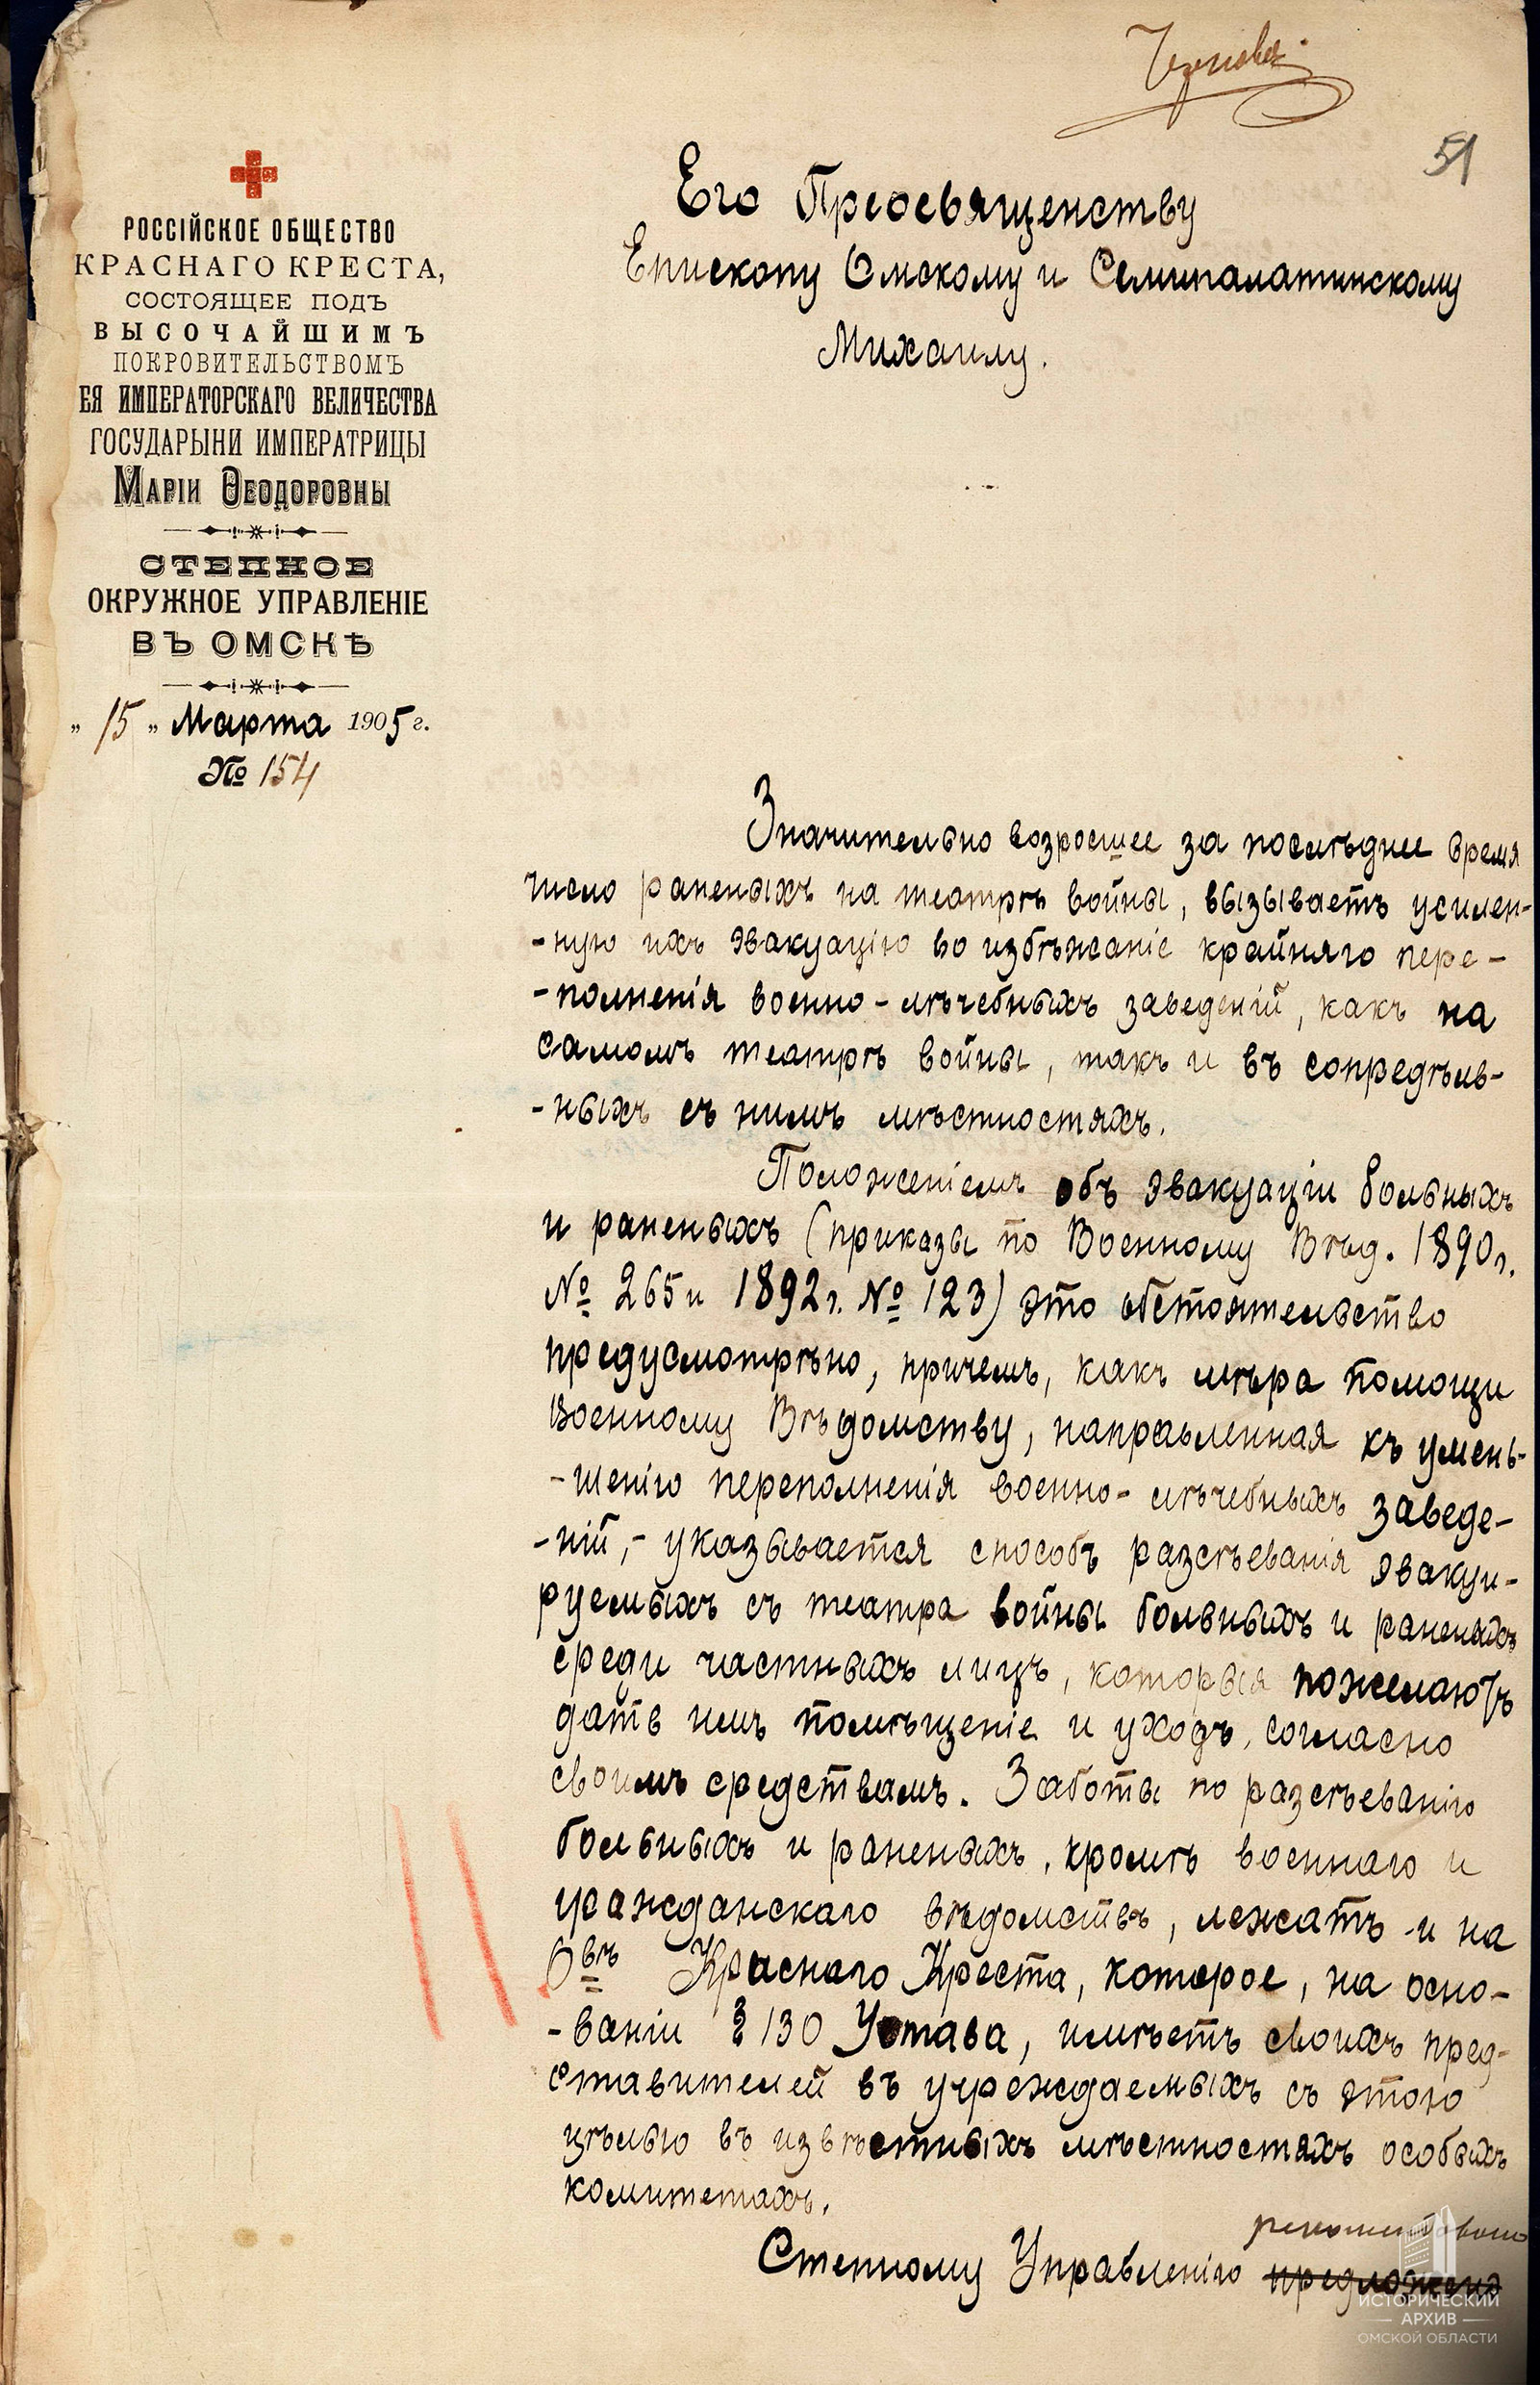 Черновая
51
РОССІЙСКОЕ ОБЩЕСТВО
КРАСНАГО КРЕСТА,
СОСТОЯЩЕЕ ПОДЪ
ВЫСОЧАЙШИМЪ
ПОКРОВИТЕЛЬСТВОМЪ
ЕЯ ИМПЕРАТОРСКАГО ВЕЛИЧЕСТВА
ГОСУДАРЫНИ ИМПЕРАТРИЦЫ
МАРІИ ѲЕОДОРОВНЫ
СТЕПНОЕ
ОКРУЖНОЕ УПРАВЛЕНІЕ
ВЪ ОМСКѢ
„ 15 „ Марта 1905 г.
№ 154
Его Преосвященству
Епископу Омскому и Семипалатинскому
Михаилу.
Значительно возросшее за послѣднее время
число раненыхъ на театрѣ войны, вызываетъ усилен-
-ную ихъ эвакуацію во избѣжаніе крайняго пере-
-полненія военно-лѣчебныхъ заведеній, какъ на
самомъ театрѣ войны, такъ и въ сопредѣль-
-ныхъ съ нимъ мѣстностяхъ.
Положеніемъ объ эвакуаціи больныхъ
и раненыхъ (приказы по Военному Вѣд. 1890 г.
№ 265 и 1892 г. № 123) это обстоятельство
предусмотрѣно, причемъ, какъ мѣра помощи
Военному Вѣдомству, направленная къ умень-
-шенію переполненія военно-лѣчебныхъ заведе-
-ній,- указывается способъ разсѣеванія эвакуи-
руемыхъ съ театра войны больныхъ и раненыхъ
среди частныхъ лицъ, которыя пожелаютъ
дать имъ помѣщеніе и уходъ, согласно
своимъ средствамъ. Заботы по разсѣеванію
больныхъ и раненыхъ, кромѣ военнаго и
гражданскаго вѣдомствъ, лежатъ и на
О-вѣ Краснаго Креста, которое, на осно-
-ваніи § 130 Устава, имѣетъ своихъ пред-
ставителей въ учреждаемыхъ съ этою
цѣлью въ извѣстныхъ мѣстностяхъ особыхъ
комитетахъ.
рекомендовано
Степному Управленію предложено
ИСТОРИЧЕСКИЙ
АРХИВ
ОМСКОЙ ОБЛАСТИ